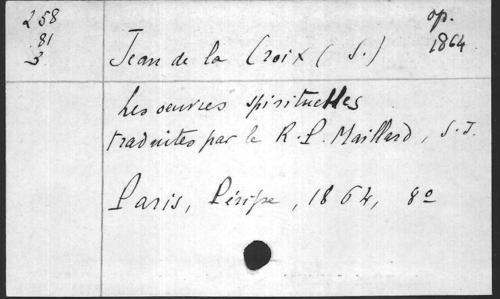 258
81
3
op.
1864
Jean de la Croix (S.)
Les oeuvres spirituelles
traduites par le R.P. Maillard, S.J.
Paris, Périsse, 1864, 8º